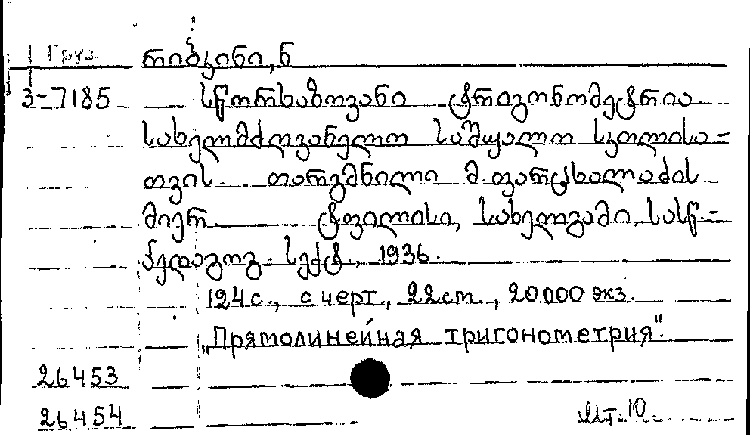 Груз რიბკინი, ნ
3-7185 სწორხაზოვანი ტრიგონომეტრია
სახელმძღვანელო საშუალო სკოლისა-
თვის. თარგმნილი მ. ფარცხალაძის
მიერ ტფილისი, სახელგამი, სასწ-
პედაგოგ. სექტ., 1936.
124 с., с черт., 22 см., 20000 экз.
"Прямолинейная тригонометрия".
26453
26454 Шт. 10.